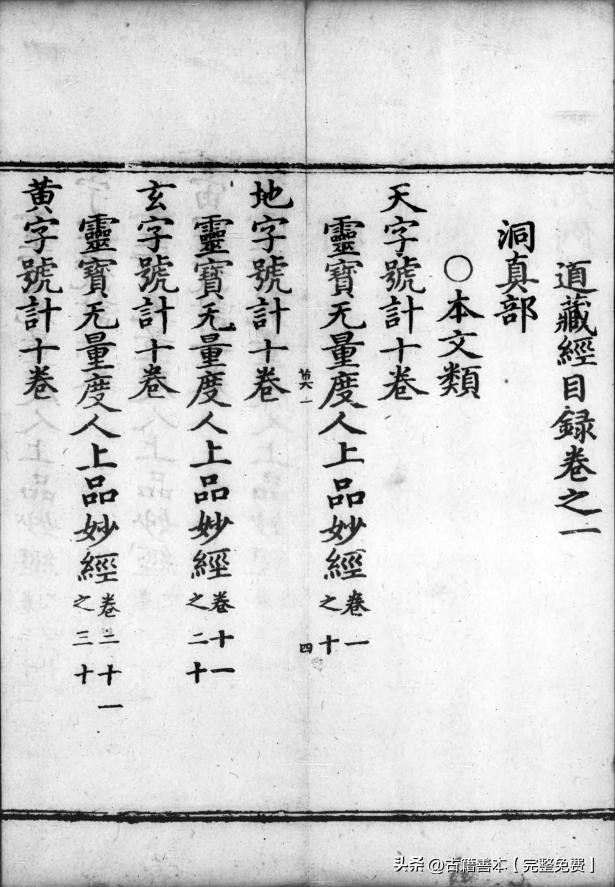 道藏經目録卷之一
洞真部
○本文類
天字號計十卷
靈寶无量度人上品妙經卷一之十
地字號計十卷
靈寶无量度人上品妙經卷十一之二十
玄字號計十卷
靈寶无量度人上品妙經卷二十一之三十
黄字號計十卷
四
头条 @古籍善本【完整免费】